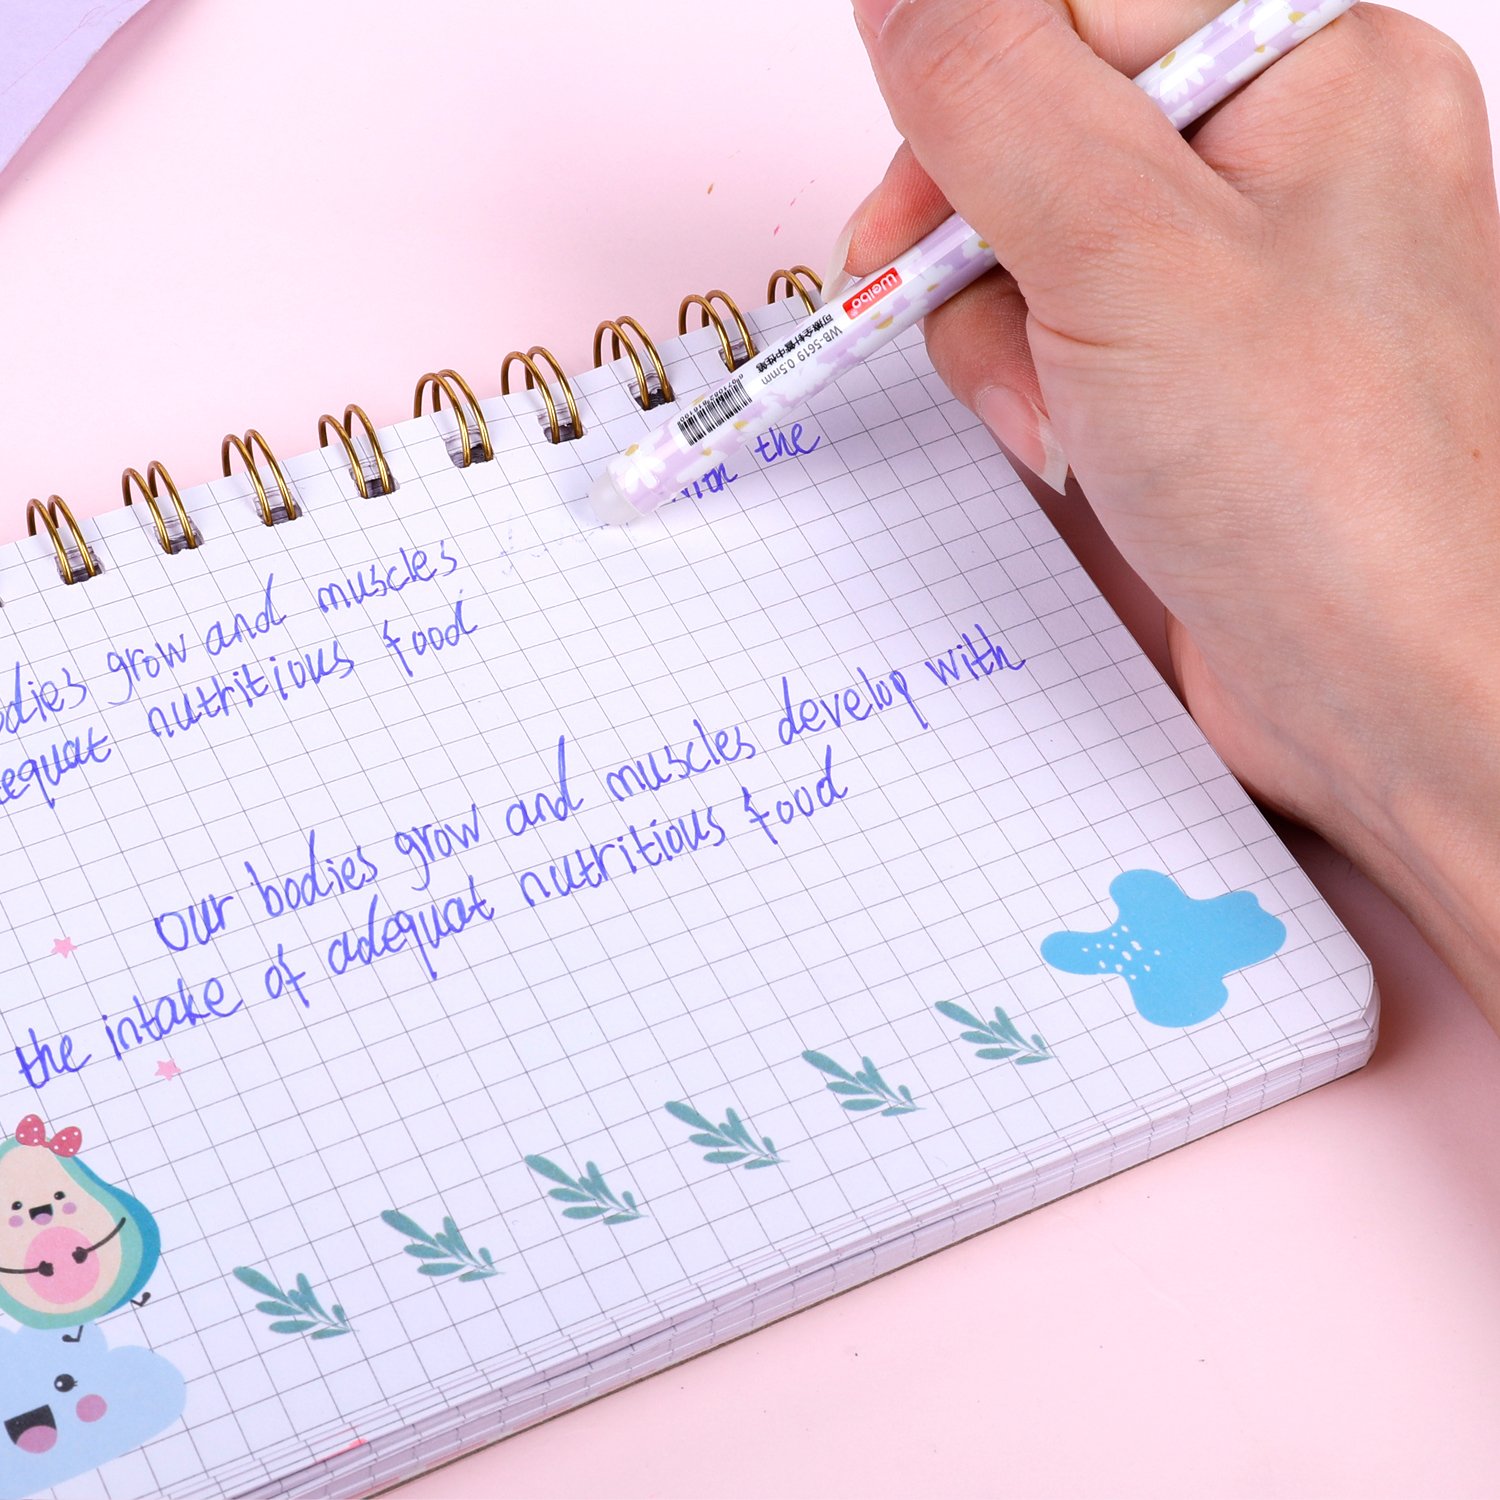 grow and muscles
with the
nutritious food
our bodies grow and muscles develop with
the intake of adequat nutritious food
Weibo
WB-5619 0.5mm
可擦全针管中性笔